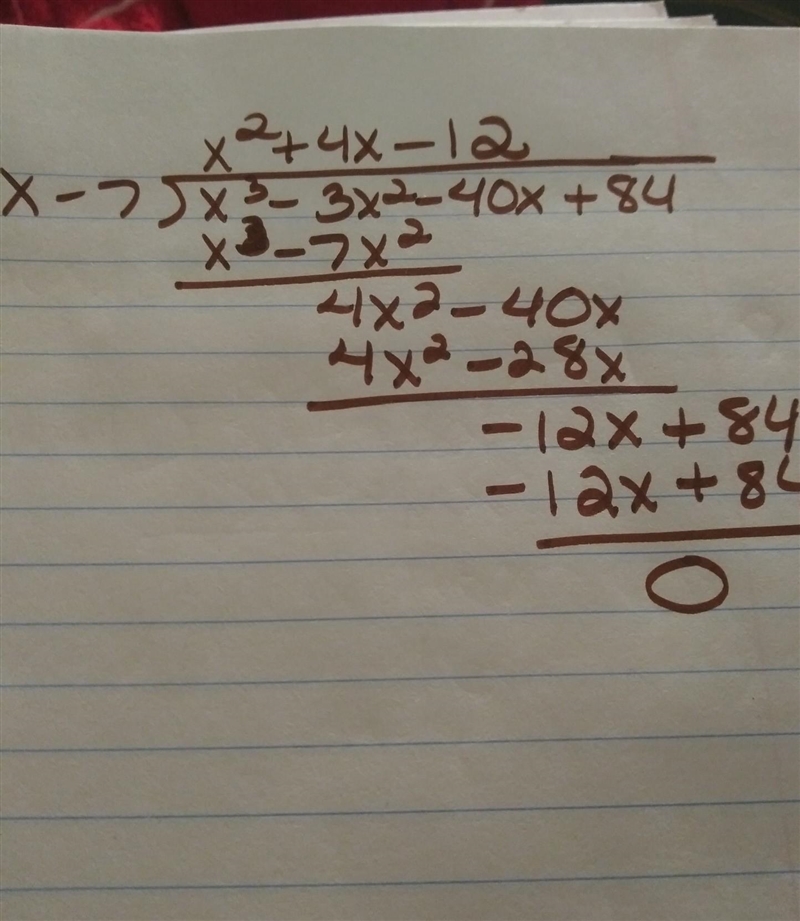 x²+4x-12
x-7)x³-3x²-40x+84
x³-7x²
4x²-40x
4x²-28x
-12x+84
-12x+84
0